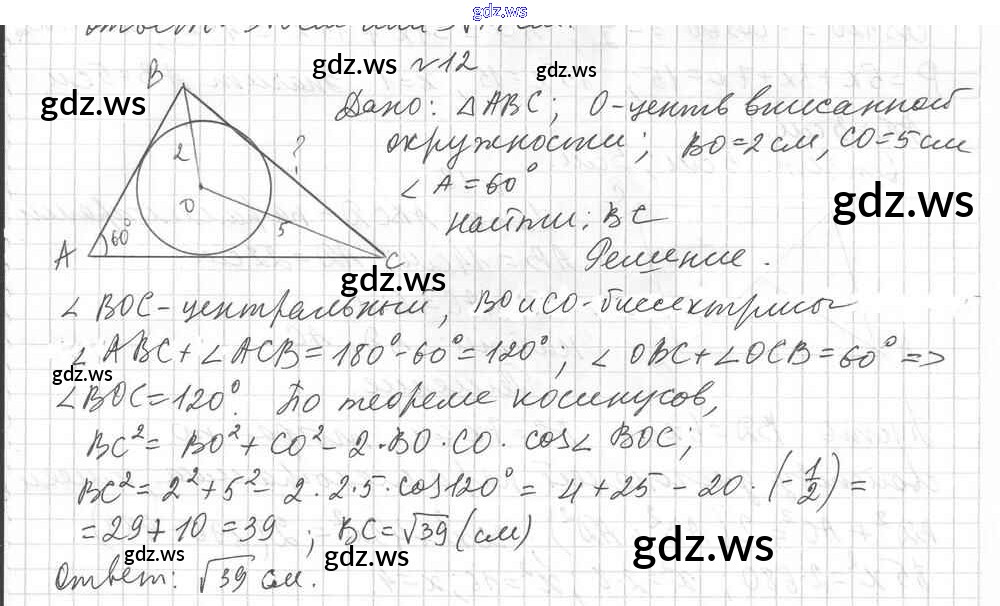 gdz.ws
gdz.ws
№12
gdz.ws
gdz.ws
Дано: △ABC; O-центр вписанной
окружности; BO=2см, CO=5см
∠A=60°
gdz.ws
Найти: BC
Решение.
B
2
?
O
5
A
60°
C
gdz.ws
∠BOC-центральный, BO и CO-биссектрисы
∠ABC+∠ACB=180°-60°=120°; ∠OBC+∠OCB=60° =>
gdz.ws
∠BOC=120°. По теореме косинусов,
BC²= BO²+CO²-2·BO·CO·cos∠BOC;
BC²=2²+5²-2·2·5·cos120°= 4+25-20·(-1/2)=
=29+10=39; BC=√39(см)
gdz.ws
gdz.ws
gdz.ws
Ответ: √39 см.